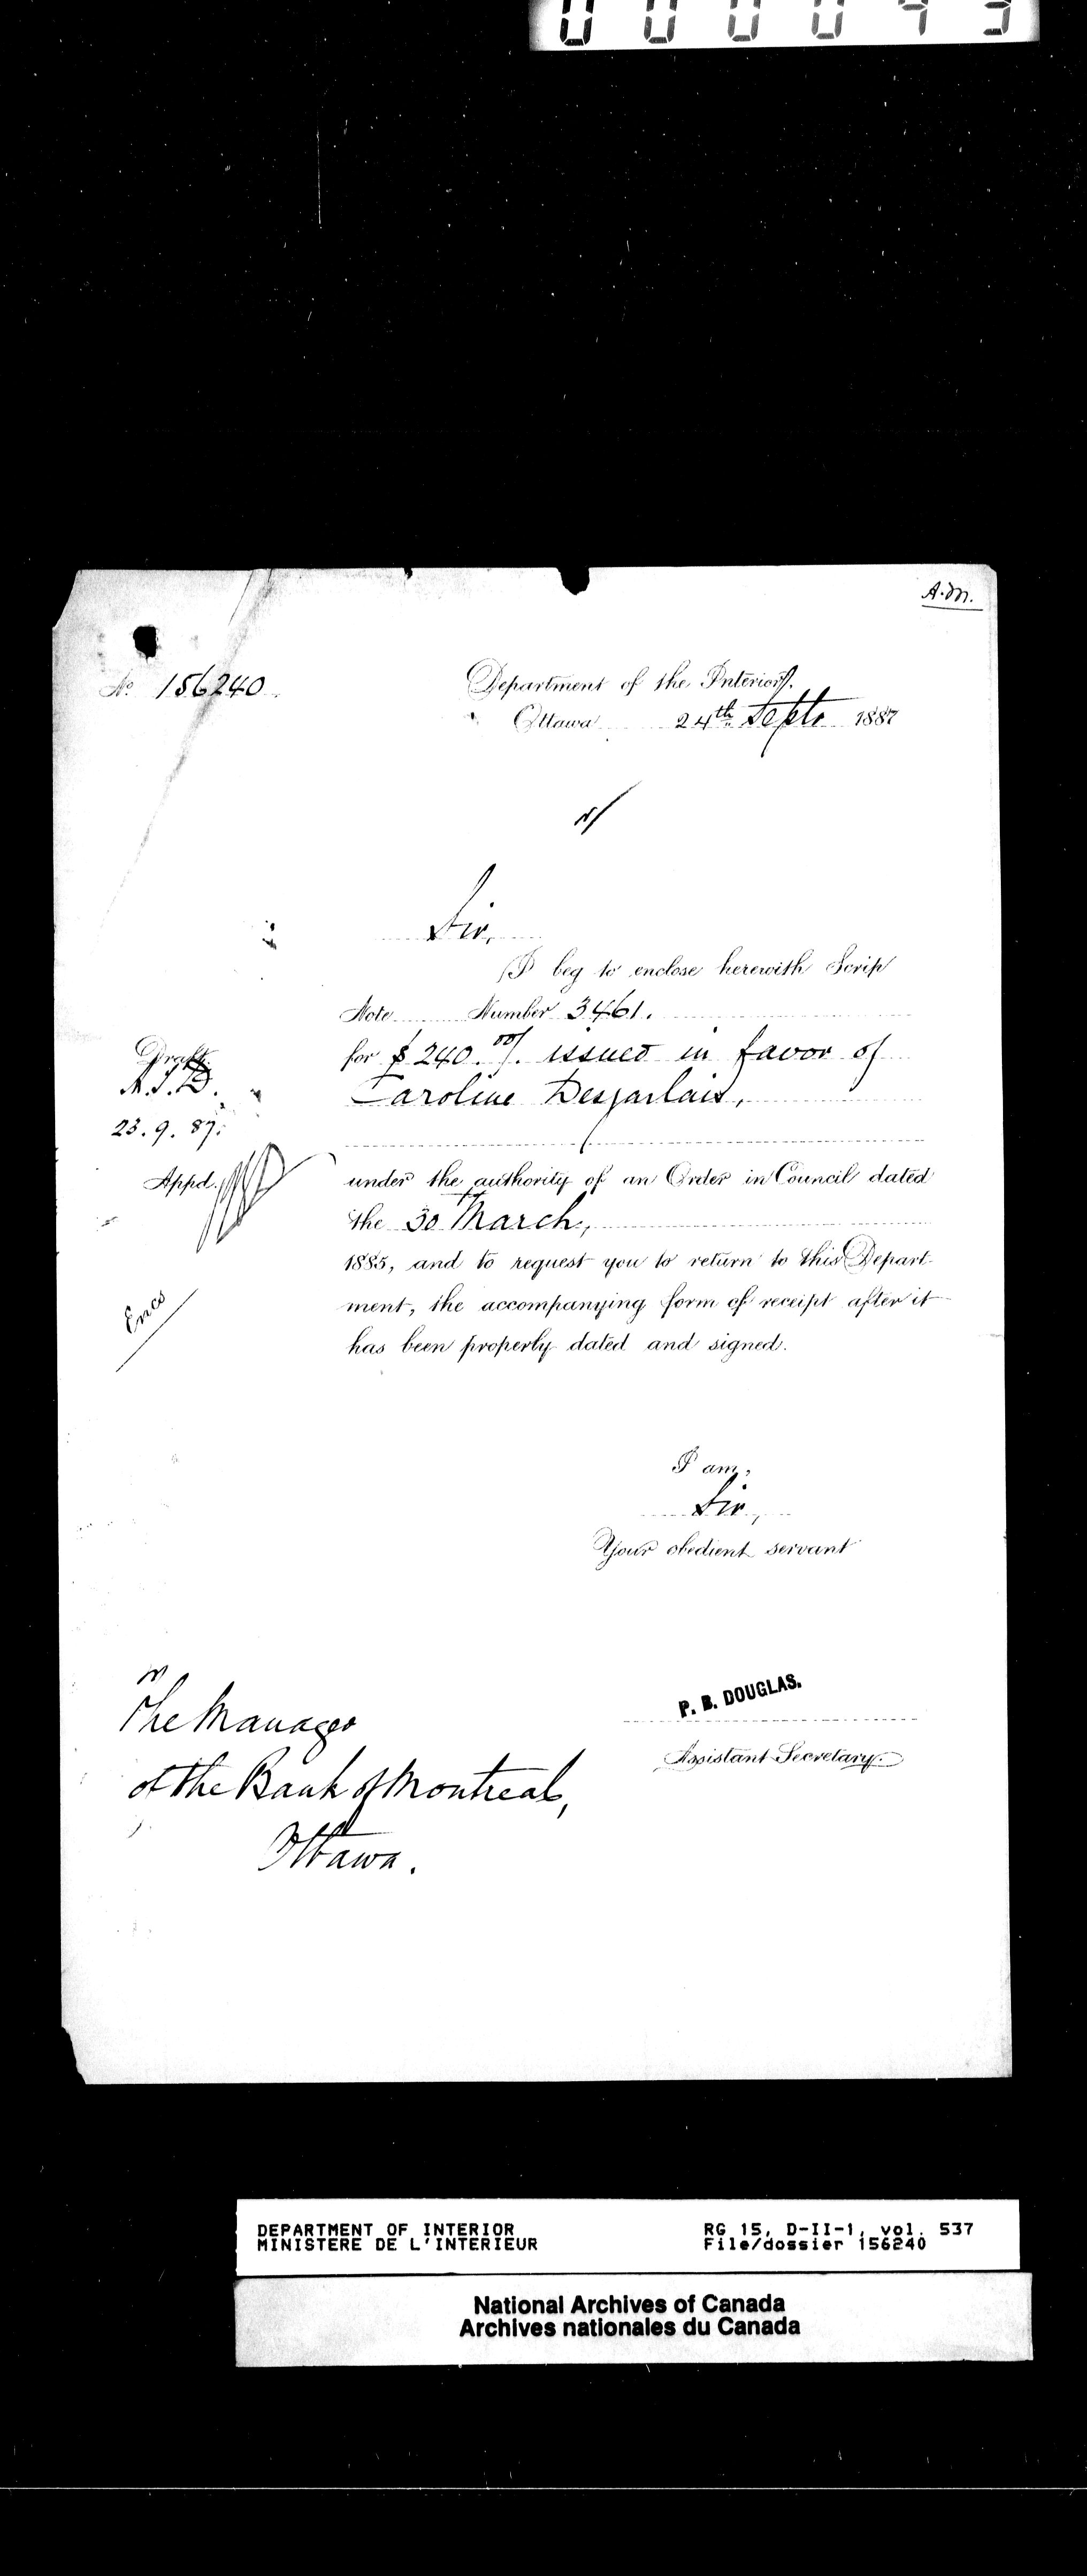 A.M.
No 156240
Department of the Interior.
Ottawa 24th Septr 1887
Sir,
I beg to enclose herewith Scrip
Note Number 3461.
for $240.00/. issued in favor of
Caroline Desjarlais,
under the authority of an Order in Council dated
the 30th March,
1885, and to request you to return to this Depart-
ment, the accompanying form of receipt after it
has been properly dated and signed.
Draft
23.9.87.
Appd.
Enco
I am,
Sir,
Your obedient servant
P. B. DOUGLAS.
Assistant Secretary.
The Manager
of the Bank of Montreal,
Ottawa.
DEPARTMENT OF INTERIOR RG 15, D-II-1, vol. 537
MINISTERE DE L'INTERIEUR File/dossier 156240
National Archives of Canada
Archives nationales du Canada